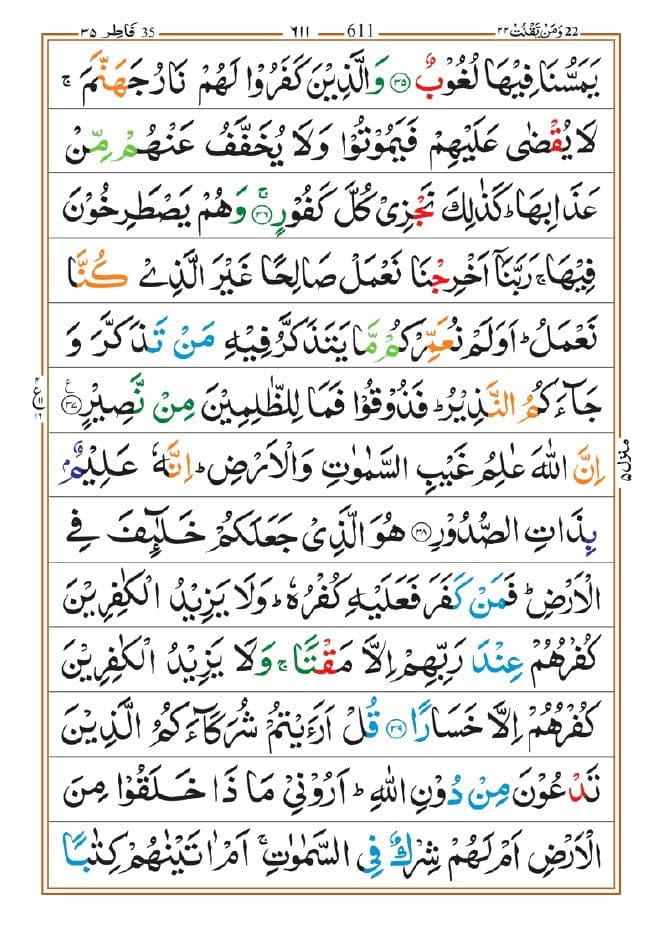 22 وَمَنۡ يَّقۡنُتۡ ٢٢ 611 ٦١١ 35 فَاطِر ٣٥
يَمَسُّنَا فِيۡهَا لُغُوۡبٌ ﴿۳۵﴾ وَالَّذِيۡنَ كَفَرُوۡا لَهُمۡ نَارُ جَهَنَّمَ ۚ
لَا يُقۡضٰى عَلَيۡهِمۡ فَيَمُوۡتُوۡا وَلَا يُخَفَّفُ عَنۡهُمۡ مِّنۡ
عَذَابِهَا ؕ كَذٰلِكَ نَجۡزِىۡ كُلَّ كَفُوۡرٍ ۚ ﴿۳۶﴾ وَهُمۡ يَصۡطَرِخُوۡنَ
فِيۡهَا ۚ رَبَّنَاۤ اَخۡرِجۡنَا نَعۡمَلۡ صَالِحًا غَيۡرَ الَّذِىۡ كُنَّا
نَعۡمَلُ ؕ اَوَلَمۡ نُعَمِّرۡكُمۡ مَّا يَتَذَكَّرُ فِيۡهِ مَنۡ تَذَكَّرَ وَ
جَآءَكُمُ النَّذِيۡرُ ؕ فَذُوۡقُوۡا فَمَا لِلظّٰلِمِيۡنَ مِنۡ نَّصِيۡرٍ ﴿۳۷﴾ ع
اِنَّ اللّٰهَ عٰلِمُ غَيۡبِ السَّمٰوٰتِ وَالۡاَرۡضِ ؕ اِنَّهٗ عَلِيۡمٌۢ
بِذَاتِ الصُّدُوۡرِ ﴿۳۸﴾ هُوَ الَّذِىۡ جَعَلَكُمۡ خَلٰٓٮِٕفَ فِى
الۡاَرۡضِ ؕ فَمَنۡ كَفَرَ فَعَلَيۡهِ كُفۡرُهٗ ؕ وَلَا يَزِيۡدُ الۡكٰفِرِيۡنَ
كُفۡرُهُمۡ عِنۡدَ رَبِّهِمۡ اِلَّا مَقۡتًا ۚ وَلَا يَزِيۡدُ الۡكٰفِرِيۡنَ
كُفۡرُهُمۡ اِلَّا خَسَارًا ﴿۳۹﴾ قُلۡ اَرَءَيۡتُمۡ شُرَكَآءَكُمُ الَّذِيۡنَ
تَدۡعُوۡنَ مِنۡ دُوۡنِ اللّٰهِ ؕ اَرُوۡنِىۡ مَا ذَا خَلَقُوۡا مِنَ
الۡاَرۡضِ اَمۡ لَهُمۡ شِرۡكٌ فِى السَّمٰوٰتِ ۚ اَمۡ اٰتَيۡنٰهُمۡ كِتٰبًا
منزل ۵